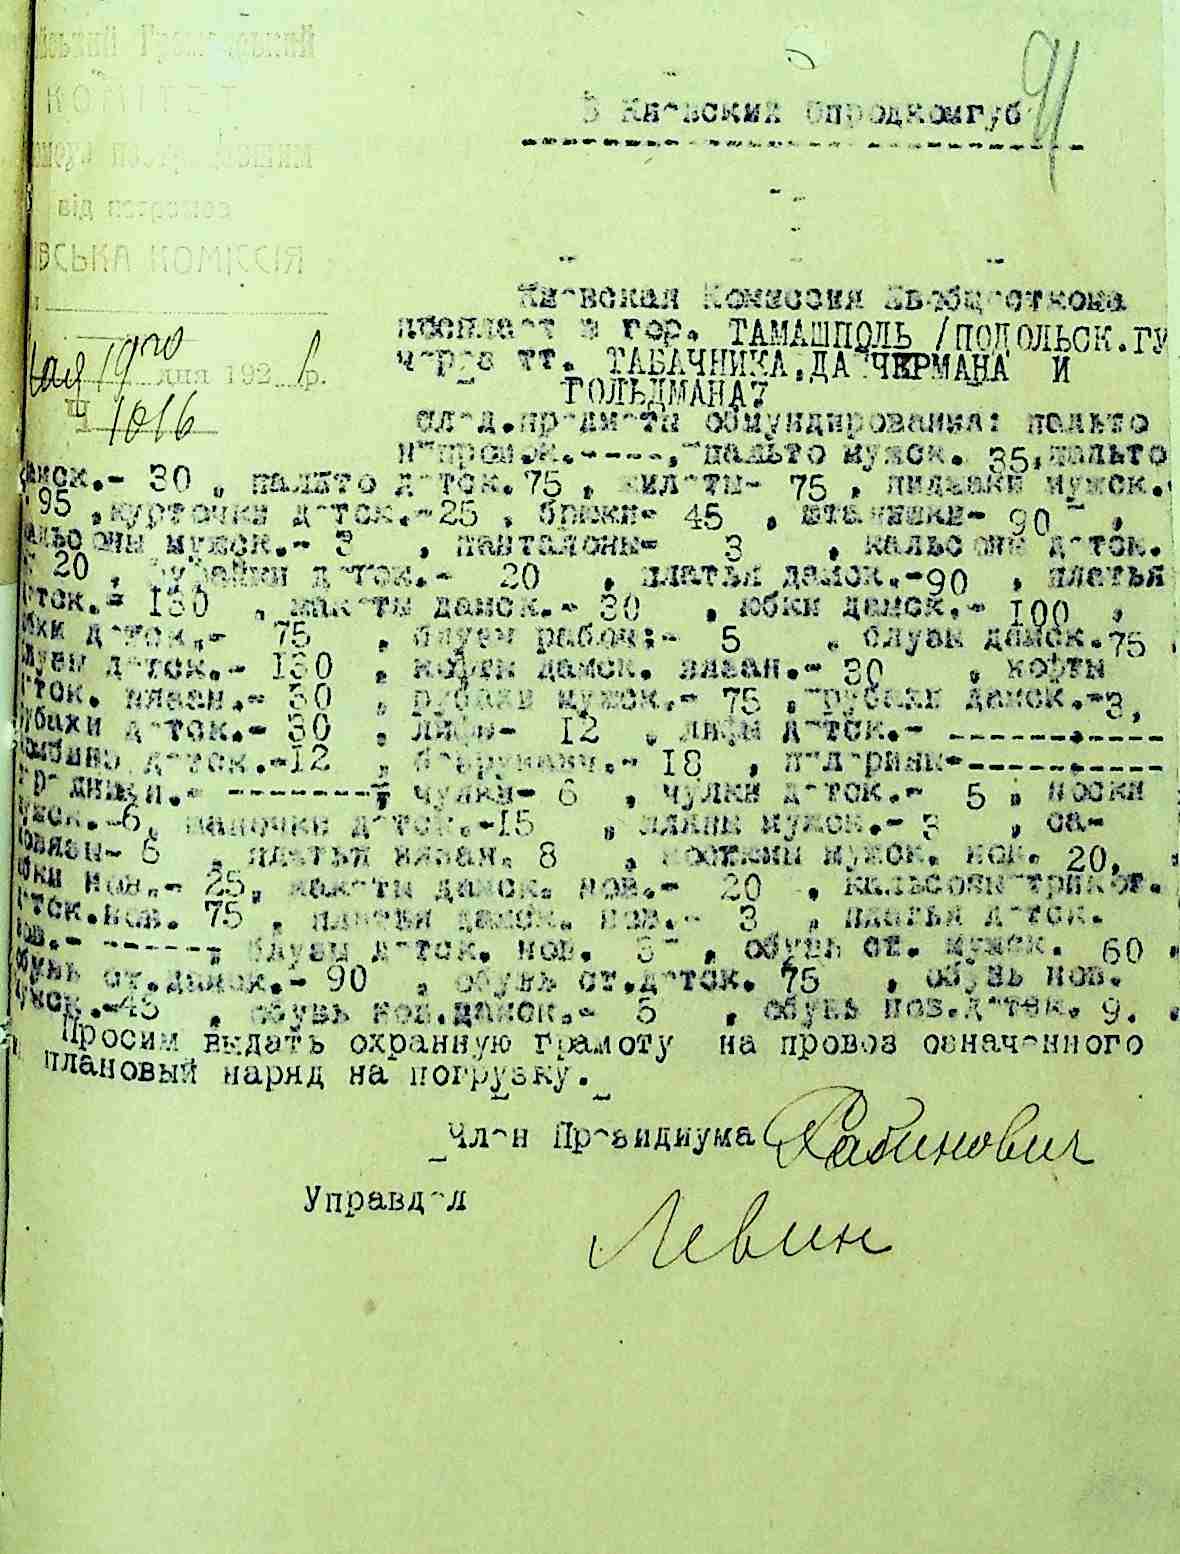 від погромов
КОМІССІЯ
91
В Киевский Опродкомгуб
Мая 19го дня 192 р.
№ 1016
Киевская Комиссия Евобщесткома
посылает в гор. ТАМАШПОЛЬ /ПОДОЛЬСК.ГУ
через тт. ТАБАЧНИКА,ДА ЧЕРМАНА И
ГОЛЬДМАНА7
след.предметы обмундирования: пальто
непром.ж.-----, пальто мужск. 35,пальто
дамск.- 30 , пальто детск.75 , жилеты- 75 , пиджаки мужск.-
95 ,курточки детск.-25 , брюки- 45 , штанишки- 90 ,
кальсоны мужск.- 3 , панталоны- 3 , кальсоны детск.
20 , детск.- 20 , платья дамск.-90 , платья
детск.- 130 , жакеты дамск.- 30 , юбки дамск.- 100 ,
юбки детск.- 75 , блузы рабоч:- 5 , блузы дамск.75 ,
блузы детск.- 130 , кофты дамск. вязан.- 30 , кофты
детск. вязан.- 30 , рубахи мужск.- 75 , рубахи дамск.-3,
рубахи детск.- 30 , лифы- 12 , лифы детск.- -----------
детск.-12 , - 18 , пелерины-----------
--------, чулки- 6 , чулки детск.- 5 , носки
мужск.-6, шапочки детск.-15 , шляпы мужск.- 3 , са-
- 6 , платья вязан. 8 , костюмы мужск. нов. 20,
юбки нов.- 25, жакеты дамск. нов.- 20 , кальсоны трикот.
детск.нов. 75 , платья дамск. нов.- 3 , платья детск.
нов.- ------, блузы детск. нов. , обувь ст. мужск. 60 ,
обувь ст.дамск.- 90 , обувь ст.детск. 75 , обувь нов.
мужск.-45 , обувь нов.дамск.- 5 , обувь нов.детск. 9. .
Просим выдать охранную грамоту на провоз означенного
плановый наряд на погрузку.
Член Президиума Рабинович
Управдел
Левин